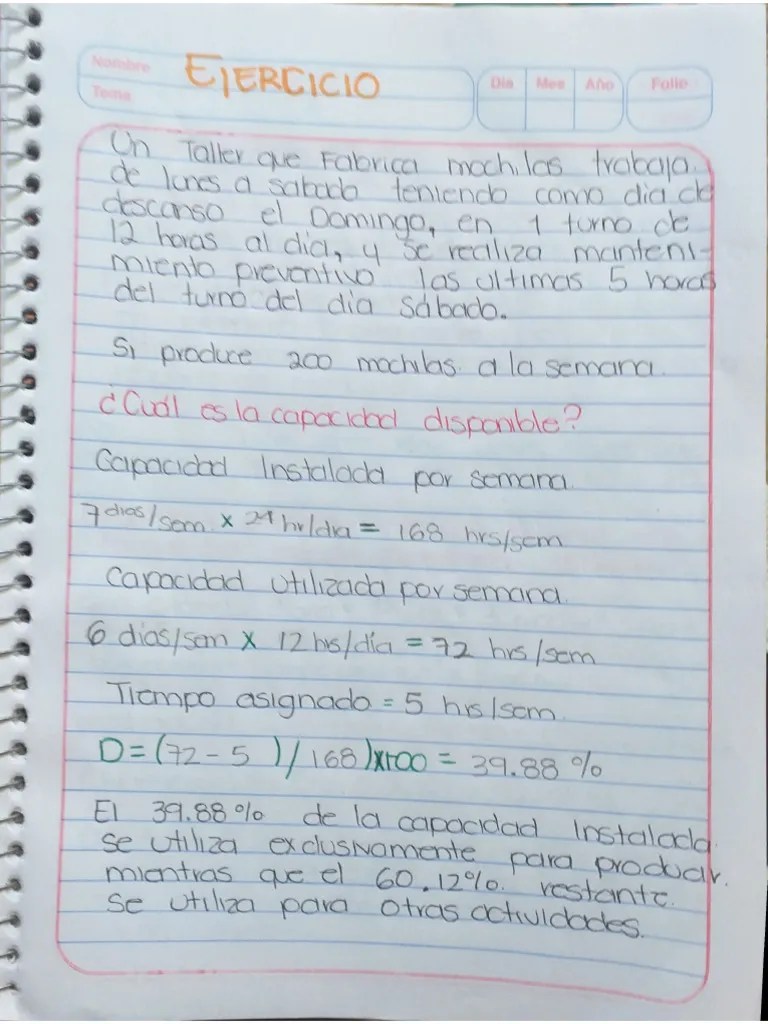 Nombre EJERCICIO Día Mes Año Folio
Tema
Un Taller que Fabrica mochilas trabaja
de lunes a sabado teniendo como dia de
descanso el Domingo, en 1 turno de
12 horas al dia, y se realiza manteni-
miento preventivo las ultimas 5 horas
del turno del día sábado.
Si produce 200 mochilas a la semana.
¿Cuál es la capacidad disponible?
Capacidad Instalada por semana
7 dias/sem x 24 hr/dia = 168 hrs/sem
Capacidad utilizada por semana.
6 dias/sem x 12 hrs/día = 72 hrs/sem
Tiempo asignado = 5 hrs/sem.
D=(72-5)/168)x100 = 39.88 %
El 39.88% de la capacidad Instalada
se utiliza exclusivamente para producir.
mientras que el 60.12% restante.
se utiliza para otras actividades.